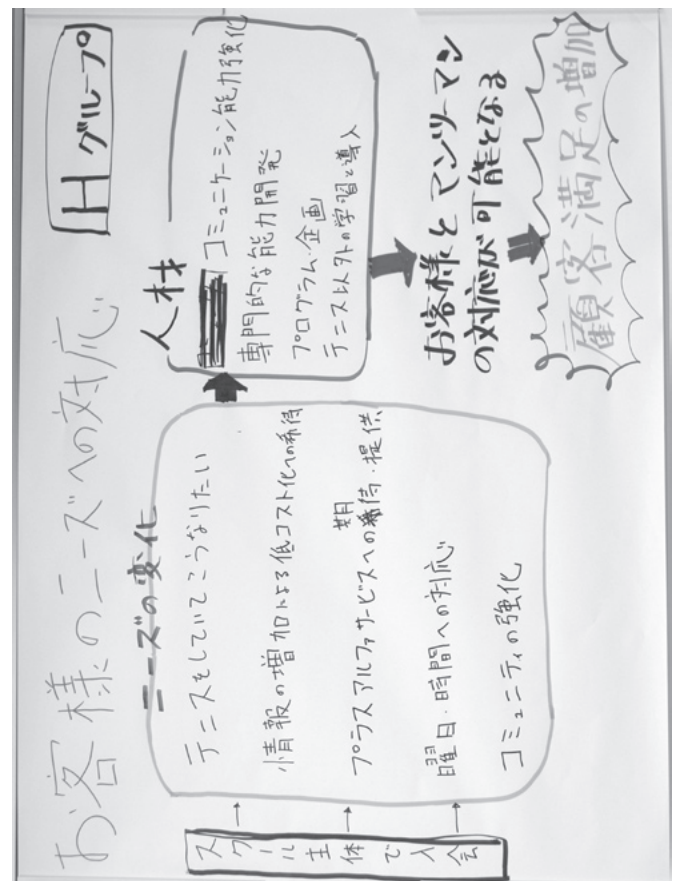 お客様のニーズへの対応
Hグループ
スクール主体で入会
ニーズの変化
テニスをしていてこうなりたい
情報の増加による低コスト化への希待
プラスアルファサービスへの期待・提供
曜日・時間への対応
コミュニティの強化
人材
コミュニケーション能力強化
専門的な能力開発
プログラム・企画
テニス以外の学習と導入
お客様とマンツーマン
の対応が可能となる
顧客満足の増加